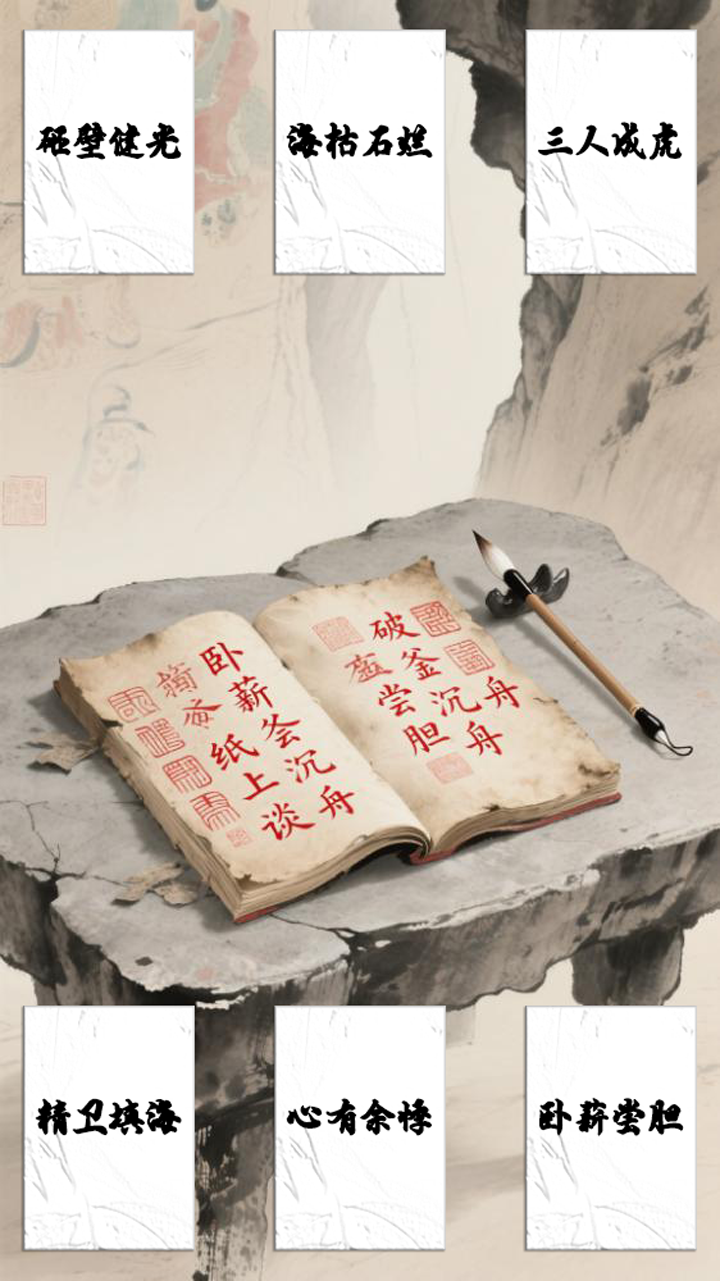 砸壁健光
海枯石烂
三人成虎
舟
破釜沉舟
尝胆
卧薪
沉舟
纸上谈
精卫填海
心有余悸
卧薪尝胆